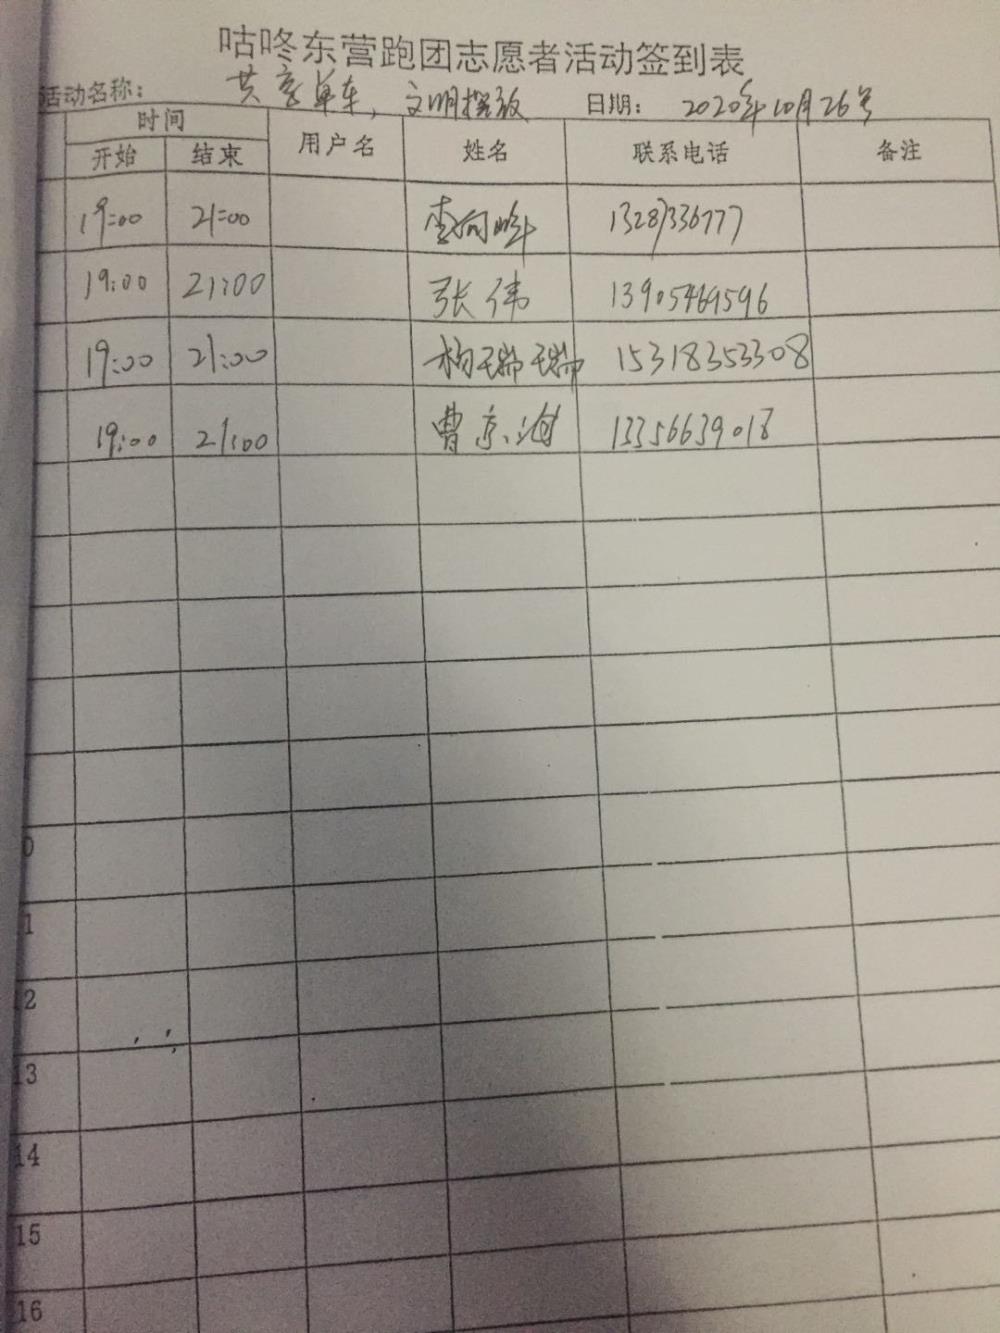 咕咚东营跑团志愿者活动签到表
活动名称： 共享单车，文明摆放 日期： 2020年10月26号
时间 用户名 姓名 联系电话 备注
开始 结束
19:00 21:00 李向晔 13287336777
19:00 21:00 张伟 13905469596
19:00 21:00 杨瑞瑞 15318353308
19:00 21:00 曹京海 13356639018
0
1
12
13
14
15
16